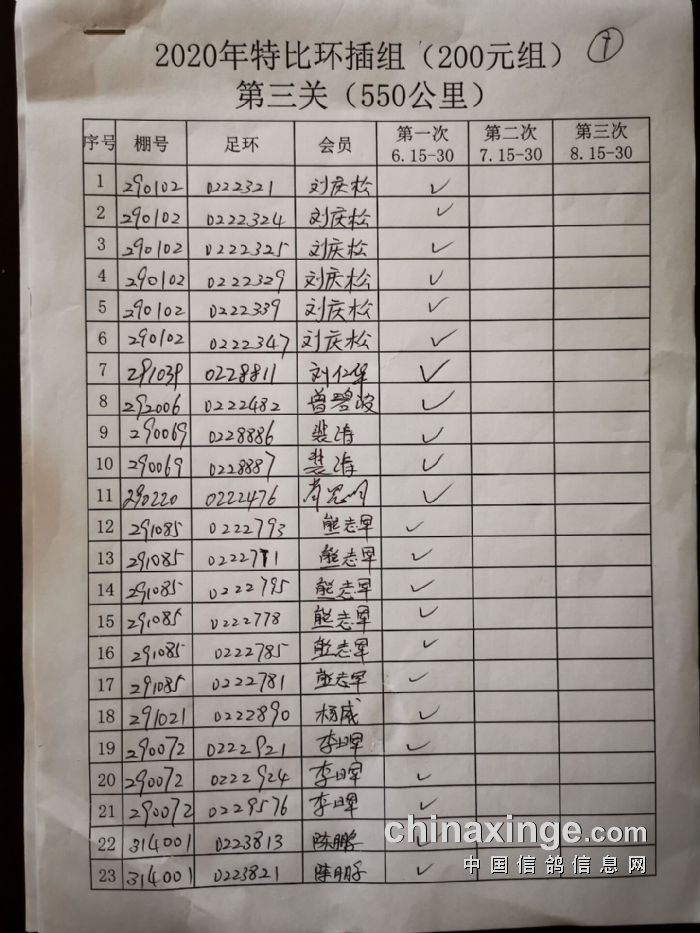 2020年特比环插组（200元组） 7
第三关（550公里）
序号 棚号 足环 会员 第一次 6.15-30 第二次 7.15-30 第三次 8.15-30
1 290102 0222321 刘庆松 ✓
2 290102 0222324 刘庆松 ✓
3 290102 0222325 刘庆松 ✓
4 290102 0222329 刘庆松 ✓
5 290102 0222339 刘庆松 ✓
6 290102 0222347 刘庆松 ✓
7 291039 0228811 刘仁华 ✓
8 292006 0222482 曾碧波 ✓
9 290069 0228886 裴涛 ✓
10 290069 0228887 裴涛 ✓
11 290220 0222476 ✓
12 291085 0222793 熊志军 ✓
13 291085 0222771 熊志军 ✓
14 291085 0222795 熊志军 ✓
15 291085 0222778 熊志军 ✓
16 291085 0222785 熊志军 ✓
17 291085 0222781 熊志军 ✓
18 291021 0222890 杨威 ✓
19 290072 0222921 李军 ✓
20 290072 0222924 李军 ✓
21 290072 0229576 李军 ✓
22 314001 0223813 陈鹏 ✓
23 314001 0223821 陈鹏 ✓
chinaxinge.com
中国信鸽信息网